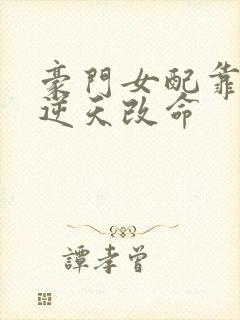 豪門女配靠
逆天改命
譚孝曾